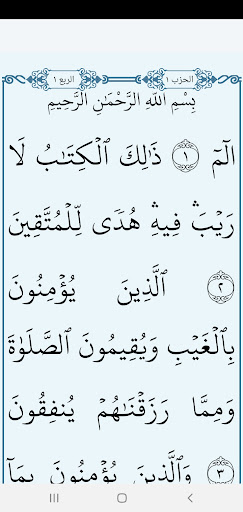 الحزب ١
الربع ١
بِسْمِ اللَّهِ الرَّحْمَٰنِ الرَّحِيمِ
الٓمٓ ١ ذَٰلِكَ ٱلْكِتَٰبُ لَا
رَيْبَ ۛ فِيهِ ۛ هُدًى لِّلْمُتَّقِينَ
٢ ٱلَّذِينَ يُؤْمِنُونَ
بِٱلْغَيْبِ وَيُقِيمُونَ ٱلصَّلَوٰةَ
وَمِمَّا رَزَقْنَٰهُمْ يُنفِقُونَ
٣ وَٱلَّذِينَ يُؤْمِنُونَ بِمَآ